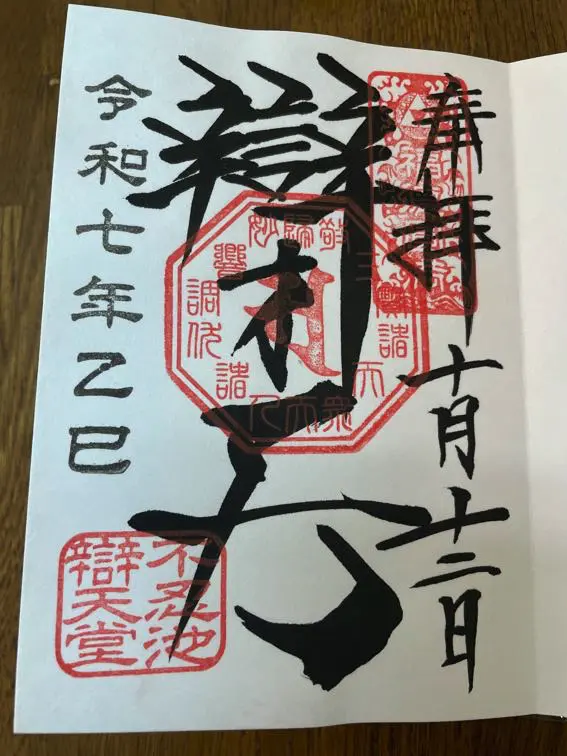 奉拝
十月十二日
辯才天
令和七年乙巳
不忍池
辯天堂